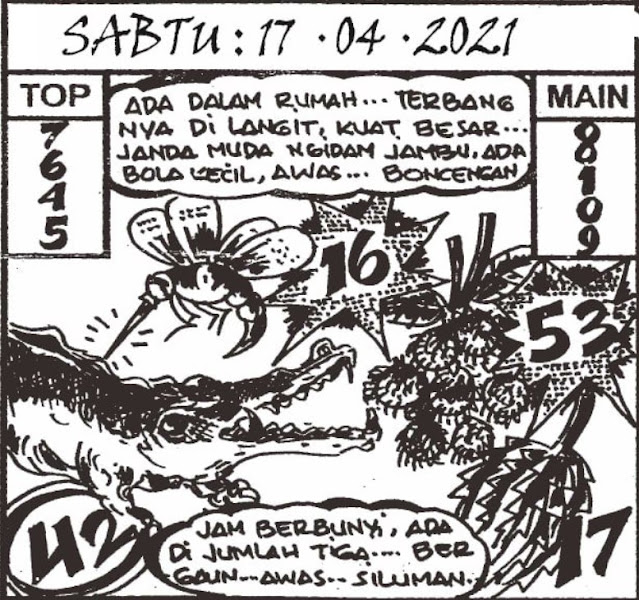 SABTU : 17 · 04 · 2021
TOP
7
6
4
5
ADA DALAM RUMAH... TERBANG
NYA DI LANGIT, KUAT BESAR...
JANDA MUDA NGIDAM JAMBU, ADA
BOLA KECIL, AWAS... BONCENGAN
MAIN
0
8
1
0
9
16
53
42
JAM BERBUNYI, ADA
DI JUMLAH TIGA.... BER
GAUN... AWAS.. SILUMAN..
17